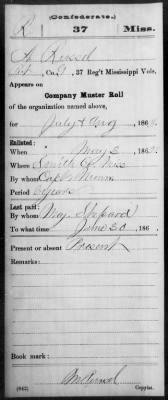 (Confederate.)
R 37 Miss.
A Russel
Pvt, Co. 37 Reg't Mississippi Vols.
Appears on
Company Muster Roll
of the organization named above,
for July & Aug, 186
Enlisted:
When May 3, 186
Where Smith Co Miss
By whom Capt
Period years
Last paid:
By whom Maj. Shepard
To what time June 30, 186
Present or absent Present
Remarks:
Book mark:
(642) Copyist.